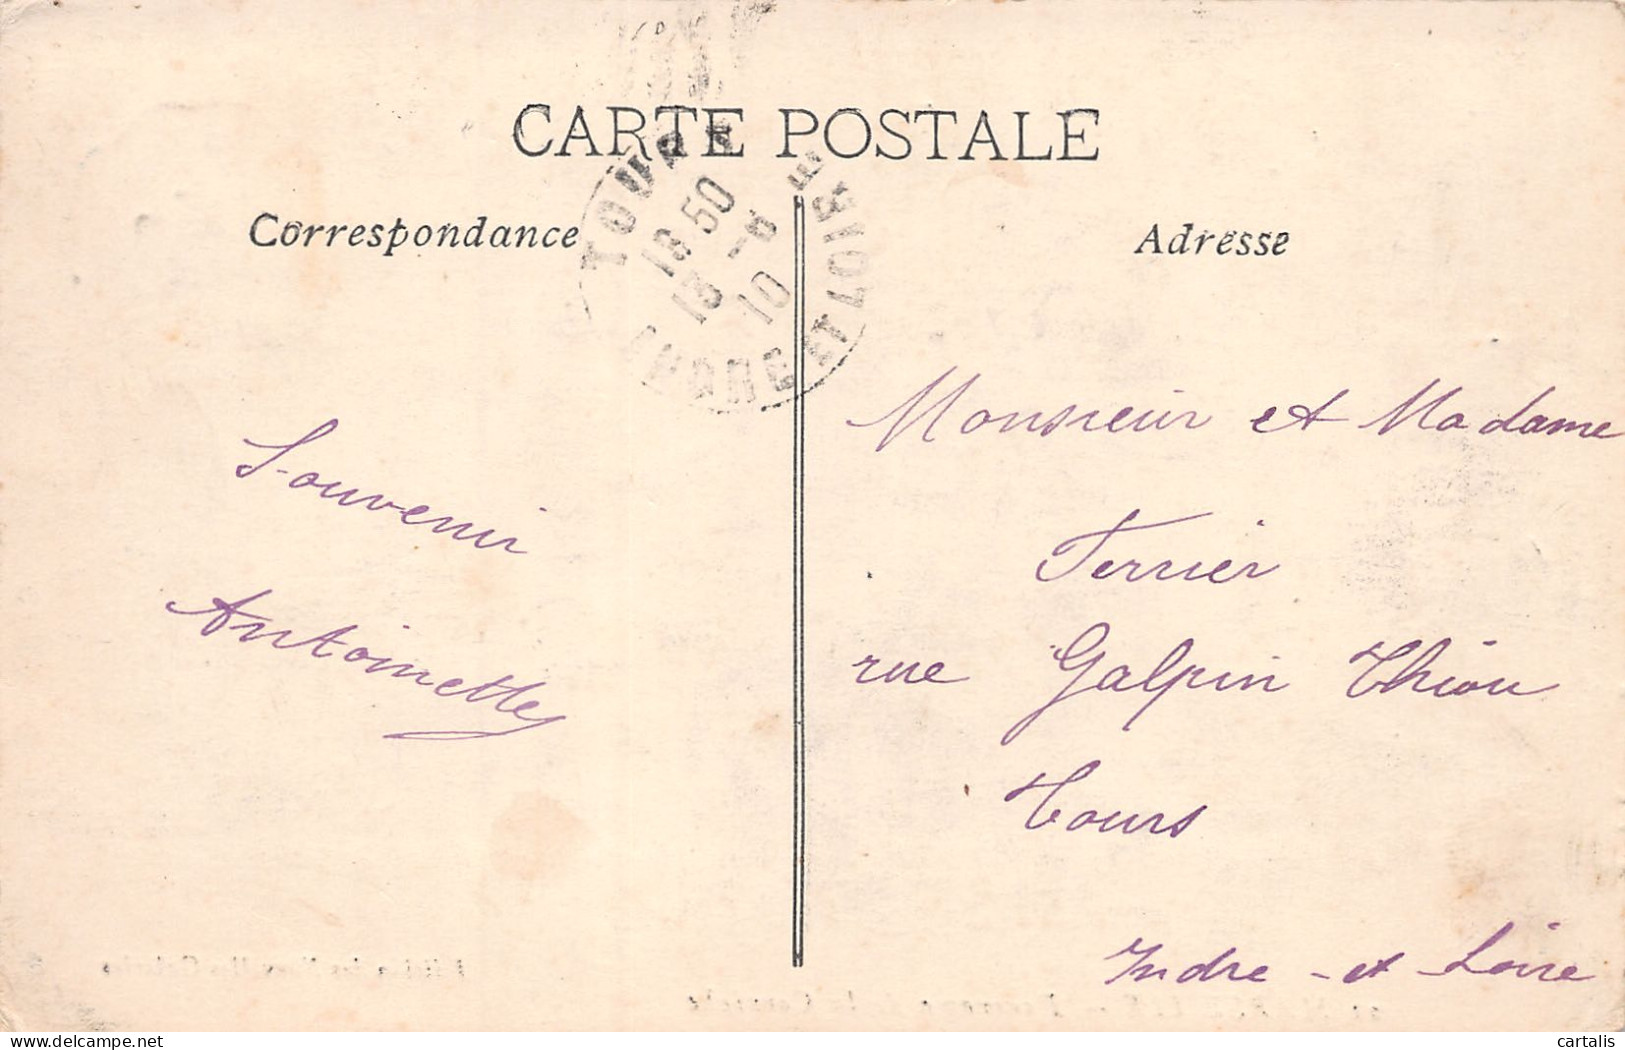 CARTE POSTALE
Correspondance
Adresse
TOURS
18 50
13 -6
10
INDRE ET LOIRE
Souvenir
Antoinette
Monsieur et Madame
Terrier
rue Galpin Thiou
Tours
Indre-et-Loire
delcampe.net
cartalis